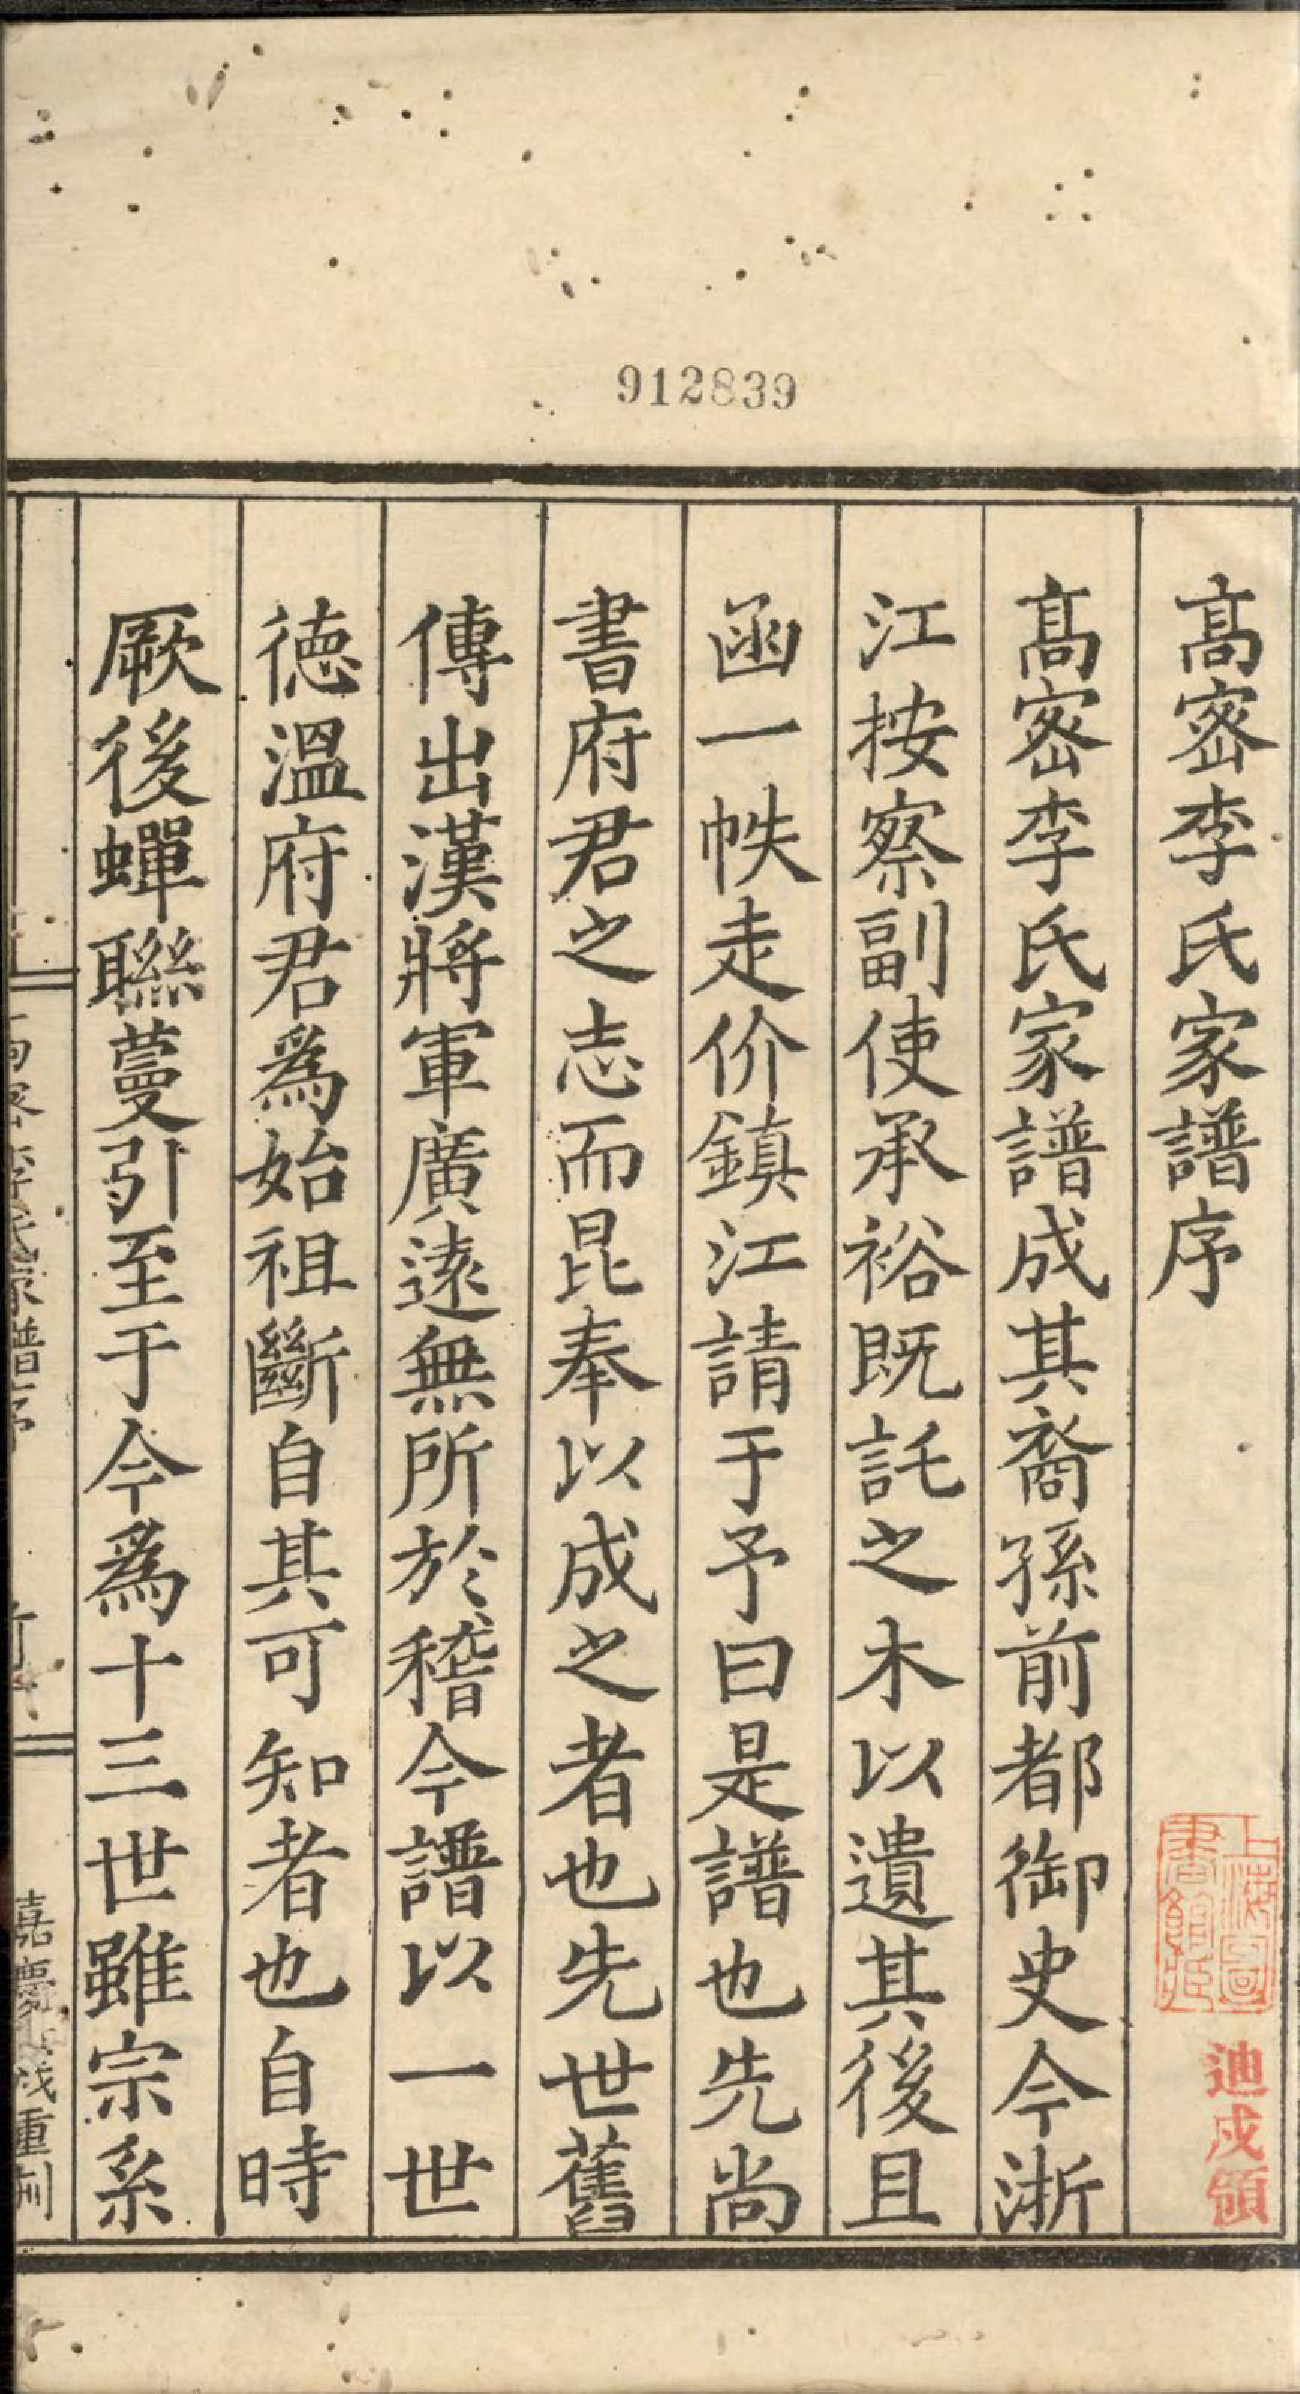 912839
高密李氏家譜序
高密李氏家譜成其裔孫前都御史今浙
江按察副使承裕既託之木以遺其後且
函一帙走价鎮江請于予曰是譜也先尚
書府君之志而昆奉以成之者也先世舊
傳出漢將軍廣遠無所於稽今譜以一世
德溫府君爲始祖斷自其可知者也自時
厥後蟬聯蔓引至于今爲十三世雖宗系
高密李氏家譜序
嘉慶 戌重刊
上海圖書館藏
迪戍領